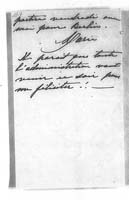 partir vendredi ou
moi pour Berlin.
Marie
Il parait que toute
l'administration veut
venir ce soir pour
me féliciter !.